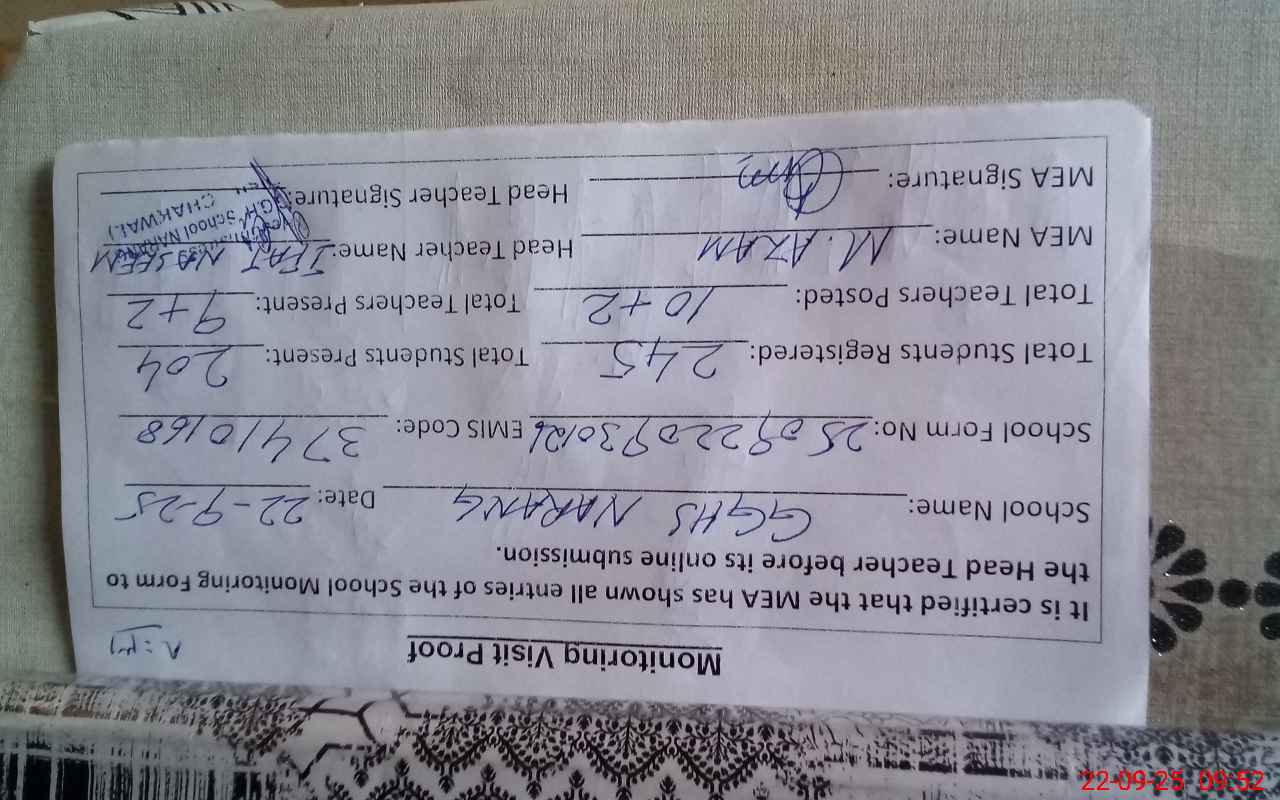 Monitoring Visit Proof
It is certified that the MEA has shown all entries of the School Monitoring Form to
the Head Teacher before its online submission.
School Name: GGHS NARANG Date: 22-9-25
School Form No: 250922093012 EMIS Code: 37410168
Total Students Registered: 245 Total Students Present: 204
Total Teachers Posted: 10+2 Total Teachers Present: 9+2
MEA Name: M. AZAM Head Teacher Name: IFAT NASEEM
MEA Signature: Head Teacher Signature:
School NARANG
CHAKWAL)
22-09-25 09:52